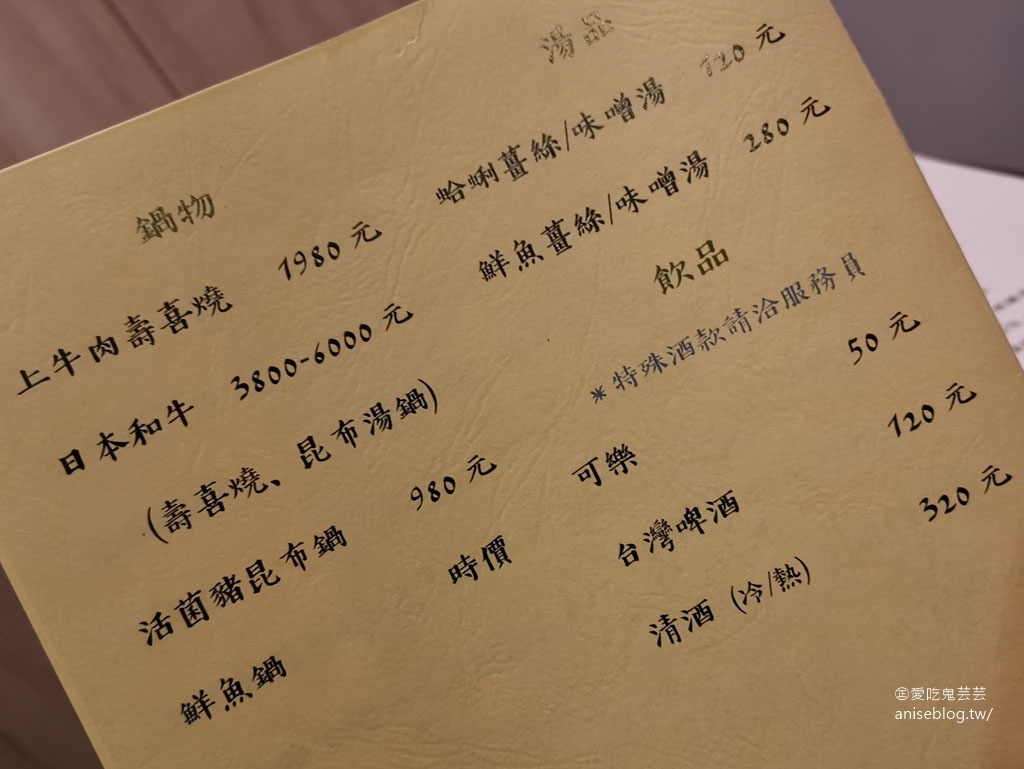 鍋物
上牛肉壽喜燒 1980 元
日本和牛 3800-6000 元
(壽喜燒、昆布湯鍋)
活菌豬昆布鍋 980 元
鮮魚鍋 時價
湯品
蛤蜊薑絲/味噌湯 120 元
鮮魚薑絲/味噌湯 280 元
飲品
*特殊酒款請洽服務員
可樂 50 元
台灣啤酒 120 元
清酒 (冷/熱) 320 元
㊣愛吃鬼芸芸
aniseblog.tw/